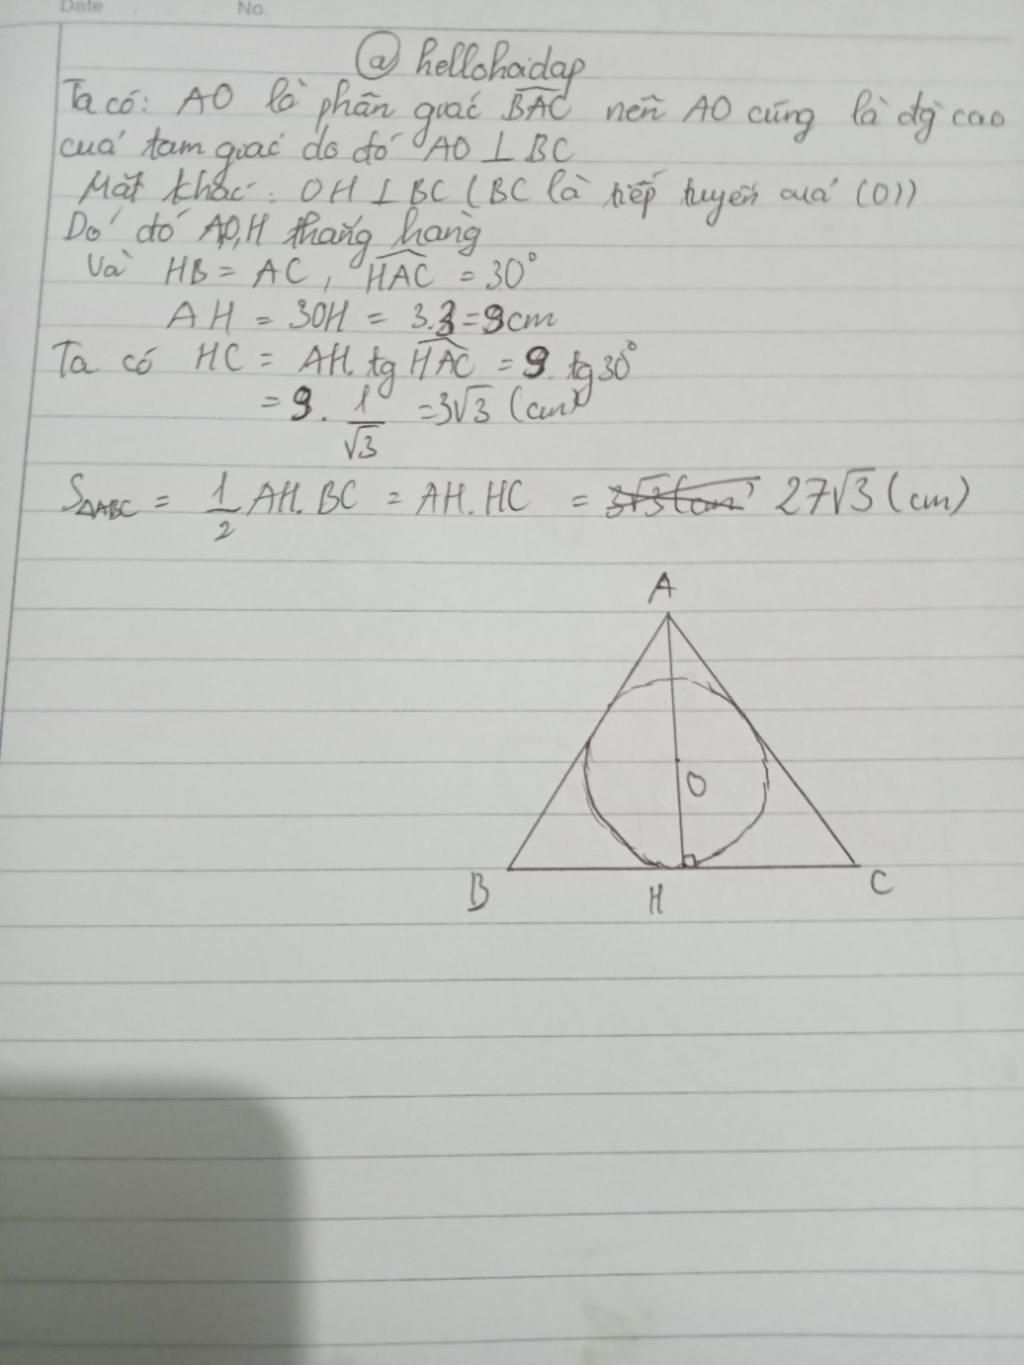 Date No.
@ hellohoidap
Ta có: AO là phân giác BAC nên AO cũng là đg cao
của tam giác do đó AO ⊥ BC
Mặt khác: OH ⊥ BC (BC là tiếp tuyến của (O))
Do đó A,O,H thẳng hàng
Và HB = AC, HAC = 30°
AH = 3OH = 3.3=9cm
Ta có HC = AH. tg HAC = 9. tg30°
= 9. 1/√3 =3√3 (cm)
SΔABC = 1/2 AH. BC = AH. HC = 27√3 (cm)
A
O
B H C